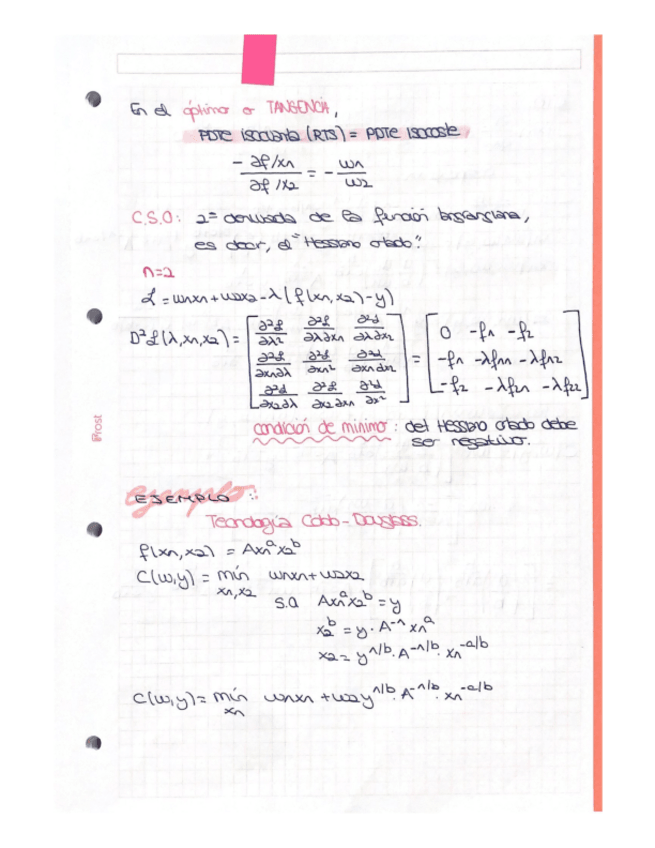 En el óptimo o TANGENCIA,
PDTE ISOCUANTA (RTS) = PDTE ISOCOSTE
- ∂f/x1 / ∂f/x2 = - w1/w2
C.S.O: 2ª derivada de la función lagrangiana,
es decir, el "Hessiano orlado".
n=2
ℒ = w1x1 + w2x2 - λ(f(x1,x2) - y)
D²ℒ(λ,x1,x2) = [ ∂²ℒ/∂λ² ∂²ℒ/∂λ∂x1 ∂²ℒ/∂λ∂x2 ] = [ 0 -f1 -f2 ]
[ ∂²ℒ/∂x1∂λ ∂²ℒ/∂x1² ∂²ℒ/∂x1∂x2 ] [ -f1 -λf11 -λf12 ]
[ ∂²ℒ/∂x2∂λ ∂²ℒ/∂x2∂x1 ∂²ℒ/∂x² ] [ -f2 -λf21 -λf22 ]
condición de mínimo: det Hessiano orlado debe
ser negativo.
Prost
ejemplo:
EJEMPLO
Tecnología Cobb-Douglass.
f(x1,x2) = Ax1^a x2^b
C(w,y) = mín w1x1 + w2x2
x1,x2
s.a Ax1^a x2^b = y
x2^b = y · A^-1 x1^a
x2 = y^1/b · A^-1/b · x1^-a/b
C(w,y) = mín w1x1 + w2 y^1/b · A^-1/b · x1^-a/b
x1